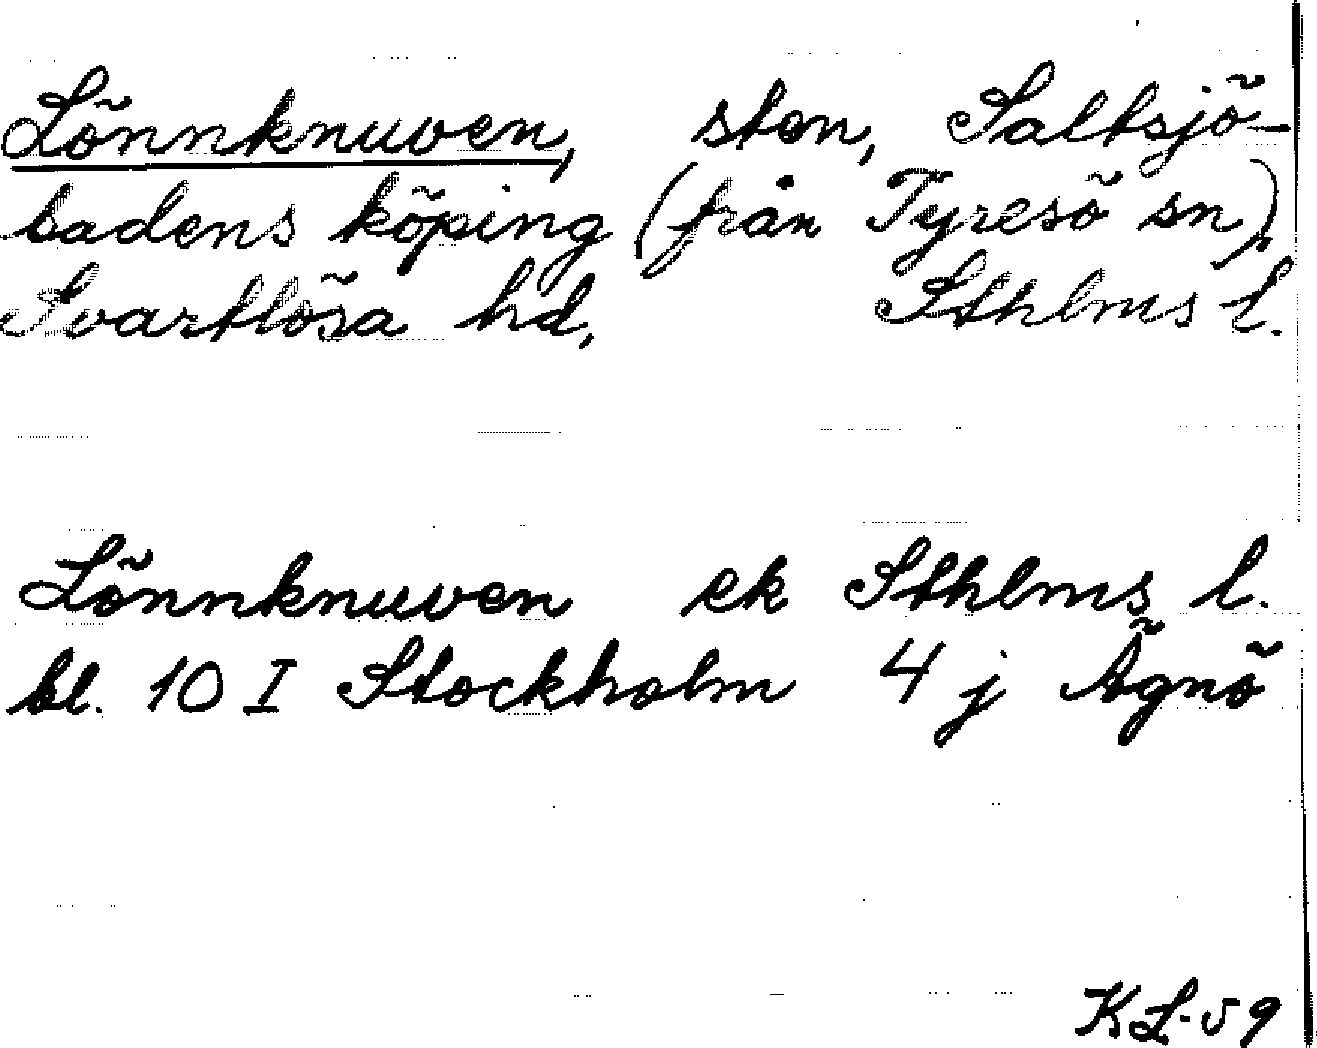 Lönnknuven, sten, Saltsjö-
badens köping (från Tyresö sn),
Svartlösa hd, Sthlms l.
Lönnknuven ek Sthlms l.
bl. 10 I Stockholm 4 j Ägnö
KL-59